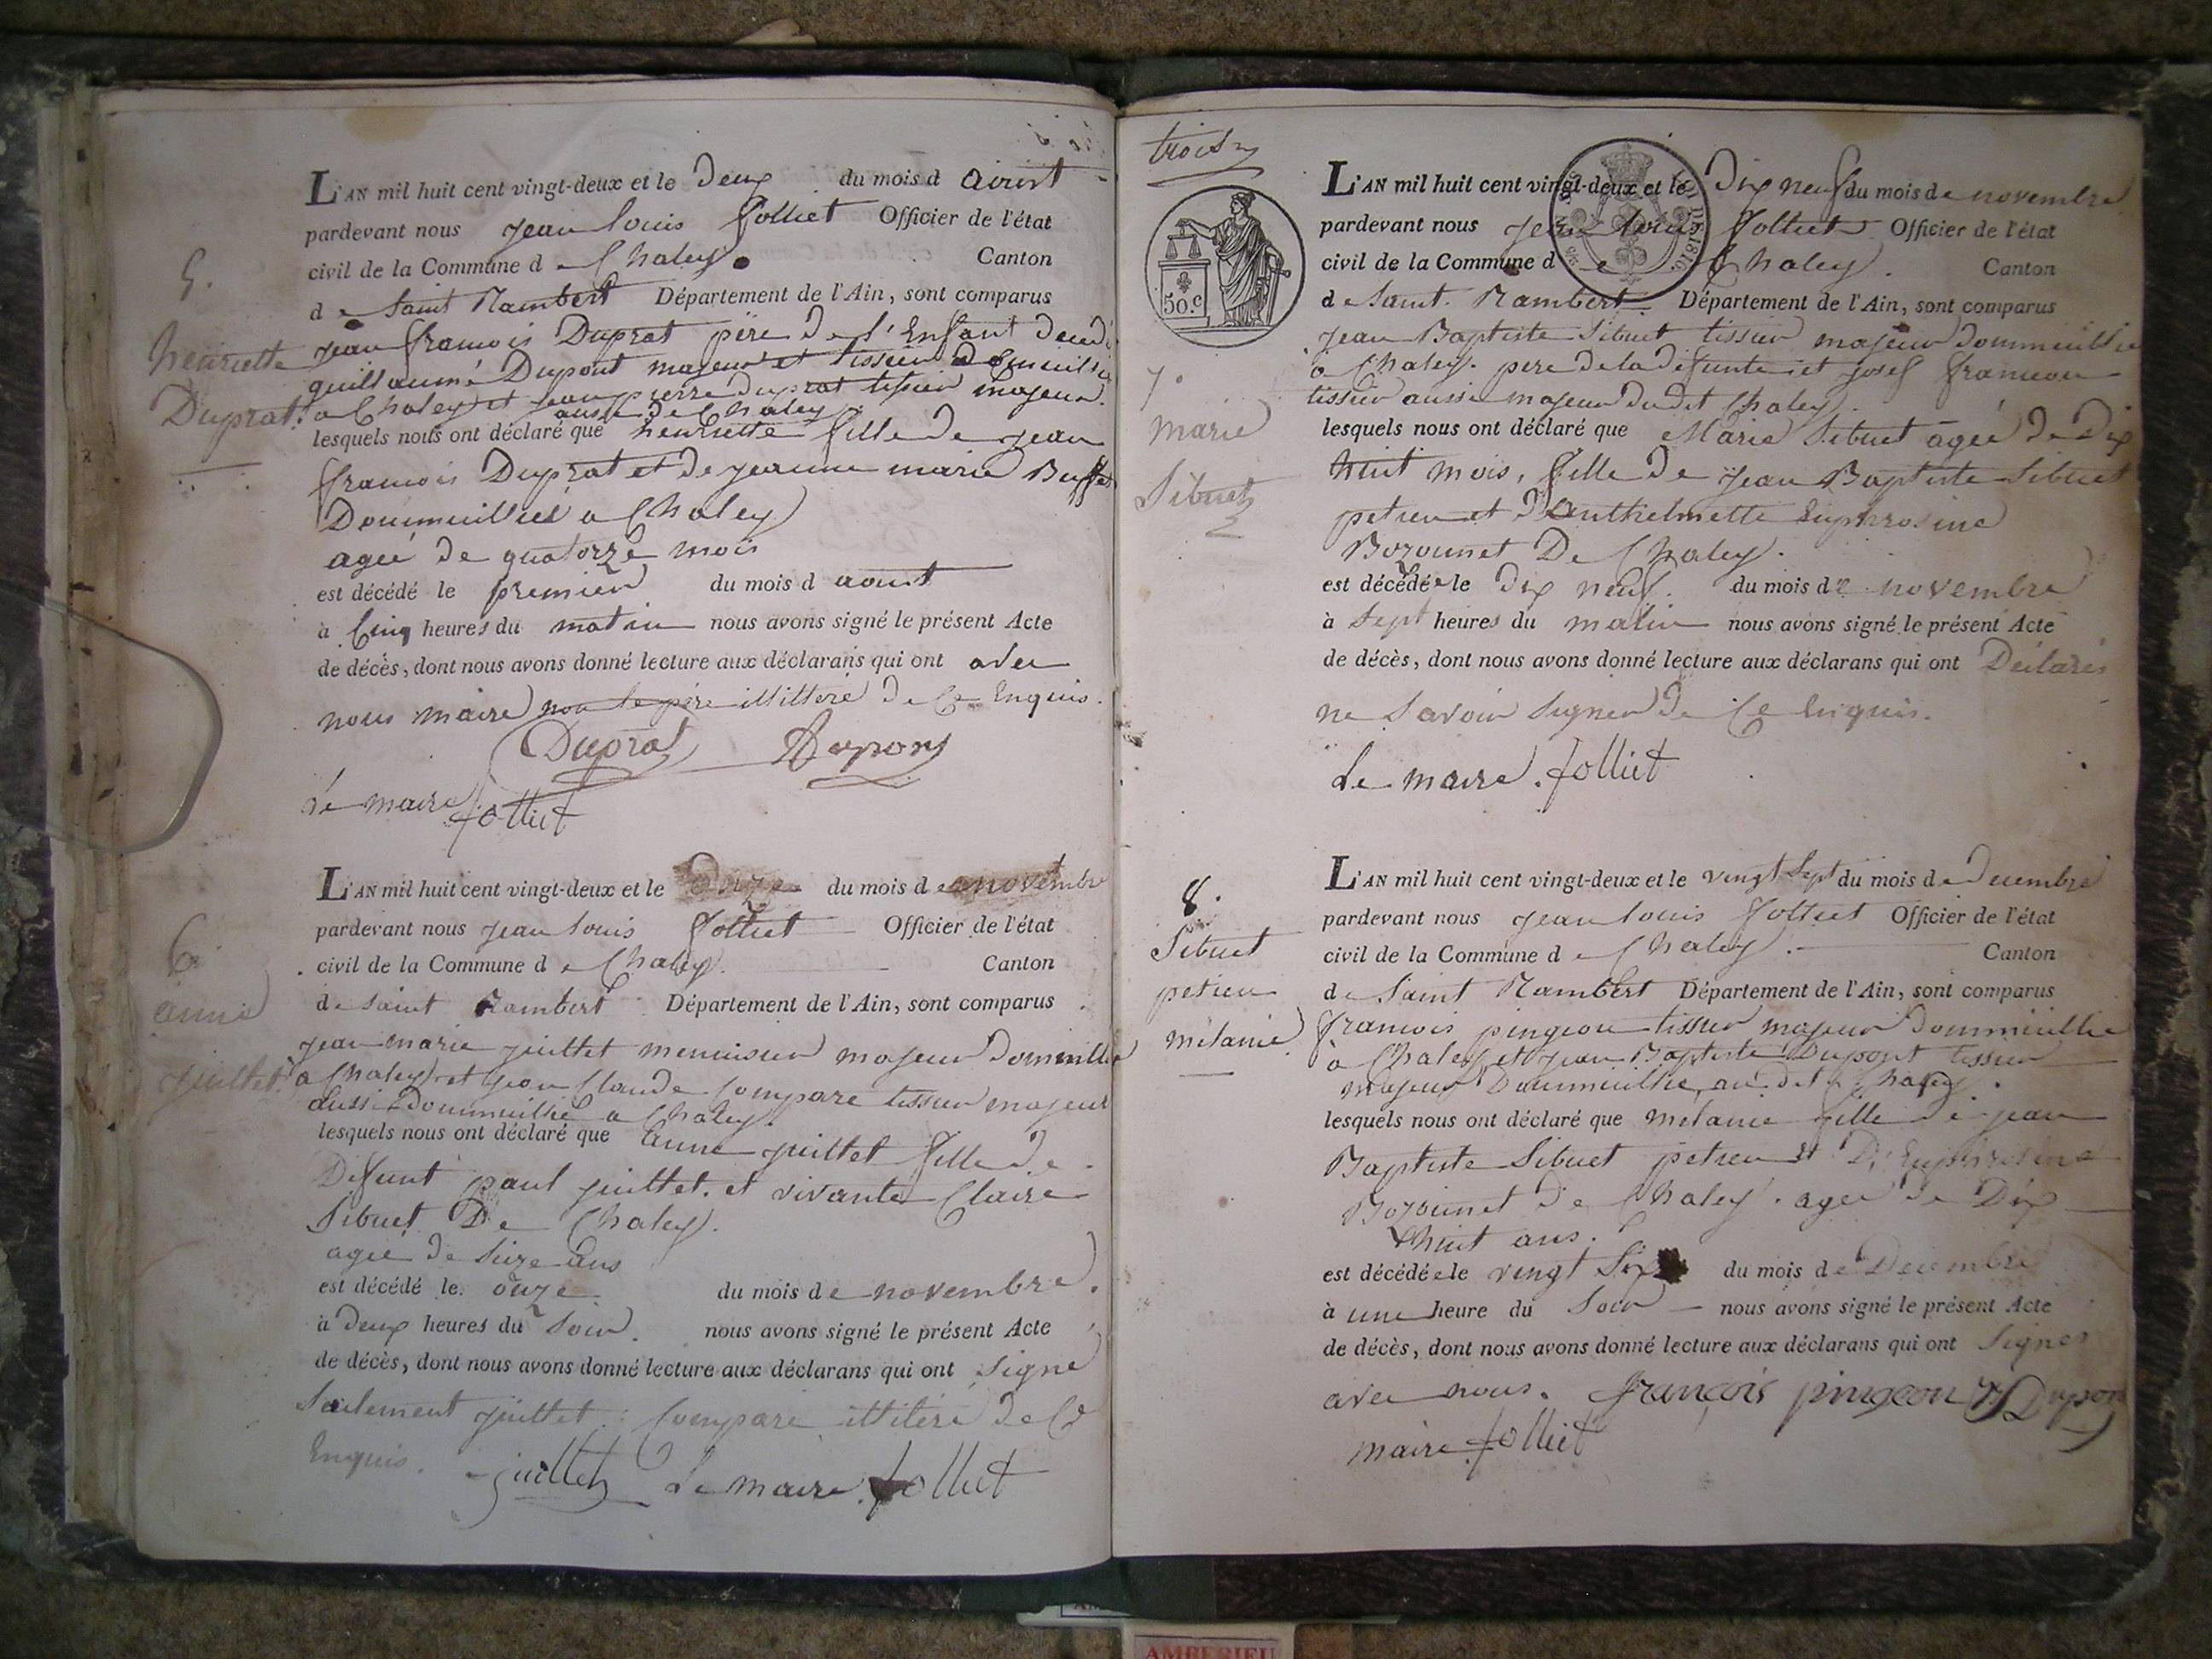 5.
henriette
Duprat.
L'AN mil huit cent vingt-deux et le deux du mois d août
pardevant nous jean louis Jolliet Officier de l'état
civil de la Commune d e Chaley Canton
d e Saint Rambert Département de l'Ain, sont comparus
jean francois Duprat père de l'Enfant
guillaume Dupont majeur et tissier
a Chaley et jean pierre duprat tissier majeur
aussi de Chaley
lesquels nous ont déclaré que henriette fille de jean
francois Duprat et de jeanne marie
Dommicilliés a Chaley
ageé de quatorze mois
est décédé le premier du mois d aout
à Cinq heures du matin nous avons signé le présent Acte
de décès, dont nous avons donné lecture aux déclarans qui ont avec
nous maire non le père illitteré de Ce Enquis.
Duprat Dupont
Le maire Jolliet
6.
anne
juillet.
L'AN mil huit cent vingt-deux et le onze du mois d e novembre
pardevant nous jean louis Jolliet Officier de l'état
civil de la Commune d e Chaley. Canton
de saint Rambert Département de l'Ain, sont comparus
jean marie juillet menuisier majeur
a Chaley et jean Claude Compare tissier majeur
aussi Dommicillié a Chaley.
lesquels nous ont déclaré que anne juillet fille de
Defunt paul juillet. et vivante Claire
Sibuet De Chaley.
ageé de seize ans
est décédé le onze du mois d e novembre.
à deux heures du soir. nous avons signé le présent Acte
de décès, dont nous avons donné lecture aux déclarans qui ont signé
Seulement juillet. Compare illiteré de Ce
Enquis. juillet Le maire. Jolliet
trois
50.c
7.
marie
Sibuet
L'AN mil huit cent vingt-deux et le Dix neuf du mois de novembre
pardevant nous jean louis Jolliet Officier de l'état
civil de la Commune d e Chaley. Canton
d e Saint. Rambert Département de l'Ain, sont comparus
Jean Baptiste Sibuet tissier majeur
a Chaley. pere de la defunte et josef
tissier aussi majeur dudit Chaley.
lesquels nous ont déclaré que Marie Sibuet ageé de Dix
huit mois, fille de jean Baptiste Sibuet
petieu et D'anthelmette Euphrosine
De Chaley.
est décédée le dix neuf. du mois de novembre
à sept heures du matin nous avons signé le présent Acte
de décès, dont nous avons donné lecture aux déclarans qui ont Déclarés
ne Savoir Signer de Ce Enquis.
Le maire. Jolliet
8.
Sibuet
petieu
mélanie
L'AN mil huit cent vingt-deux et le vingt sept du mois de Decembre
pardevant nous jean louis Jolliet Officier de l'état
civil de la Commune d e Chaley. Canton
d e Saint Rambert Département de l'Ain, sont comparus
francois pingeon tissier majeur
à Chaley et jean Baptiste Dupont tissier
majeur Dommicillié au dit Chaley.
lesquels nous ont déclaré que mélanie fille de jean
Baptiste Sibuet petieu et D'Euphrosine
de Chaley. ageé de Dix
huit ans.
est décédée le vingt Six du mois de Decembre
à une heure du soir nous avons signé le présent Acte
de décès, dont nous avons donné lecture aux déclarans qui ont signés
avec nous. françois pingeon Dupont
maire Jolliet
AMBERIEU